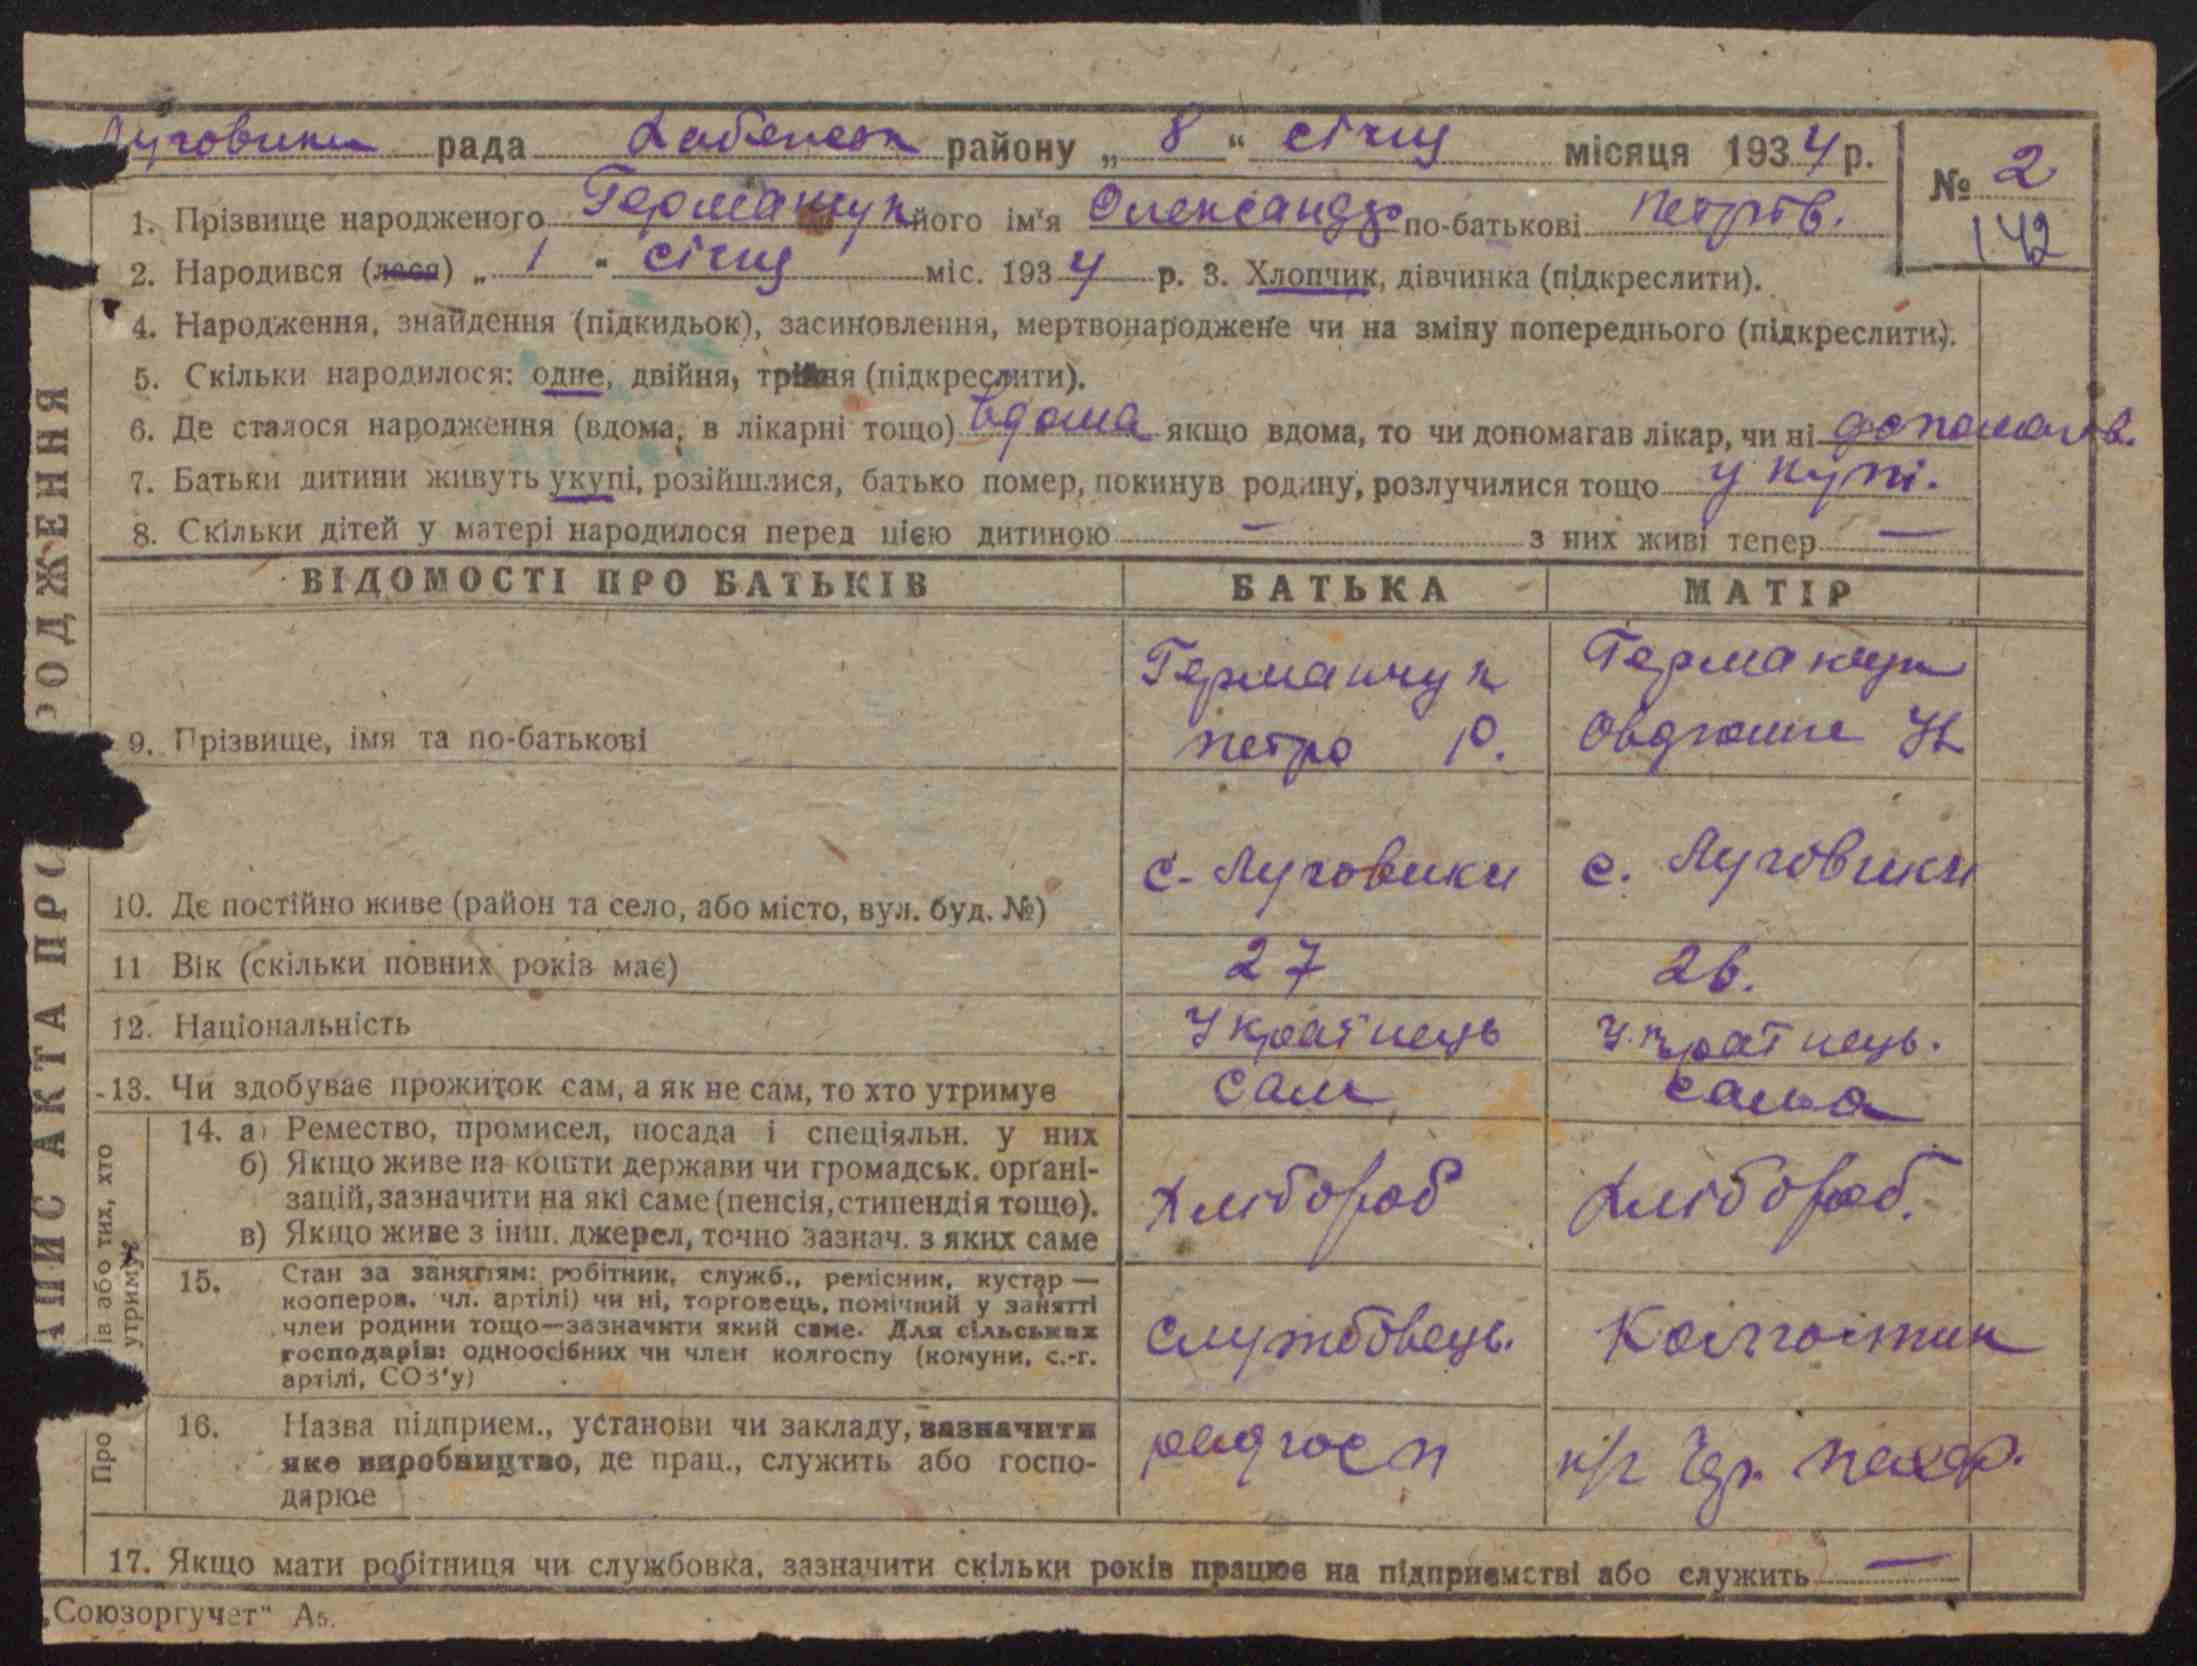 Луговики рада Хабенськ району „ 8 “ січня місяця 1934 р. № 2
142
1. Прізвище народженого Германчук його ім'я Олександр по-батькові Петров.
2. Народився (лася) „ 1 “ січня міс. 1934 р. 3. Хлопчик, дівчинка (підкреслити).
4. Народження, знайдення (підкидьок), засиновлення, мертвонароджене чи на зміну попереднього (підкреслити).
5. Скільки народилося: одне, двійня, трійня (підкреслити).
6. Де сталося народження (вдома, в лікарні тощо) вдома якщо вдома, то чи допомагав лікар, чи ні
7. Батьки дитини живуть укупі, розійшлися, батько помер, покинув родину, розлучилися тощо укупі.
8. Скільки дітей у матері народилося перед цією дитиною — з них живі тепер —
ВІДОМОСТІ ПРО БАТЬКІВ БАТЬКА МАТІР
9. Прізвище, імя та по-батькові Германчук Петро Ю. Германчук
10. Де постійно живе (район та село, або місто, вул. буд. №) с. Луговики с. Луговики
11 Вік (скільки повних років має) 27 26.
12. Національність Українець Українець.
13. Чи здобуває прожиток сам, а як не сам, то хто утримує Сам сама
14. а) Ремество, промисел, посада і спеціяльн. у них
б) Якщо живе на кошти держави чи громадськ. органі-
зацій, зазначити на які саме (пенсія, стипендія тощо). Хлібороб Хлібороб.
в) Якщо живе з інш. джерел, точно зазнач. з яких саме
15. Стан за заняттям: робітник, служб., ремісник, кустар —
кооперов. чл. артілі) чи ні, торговець, помічний у занятті
член родини тощо—зазначити який саме. Для сільських
господарів: одноосібних чи член колгоспу (комуни, с.-г.
артілі, СОЗ'у) Службовець. Колгоспник
16. Назва підприєм., установи чи закладу, зазначити
яке виробництво, де прац., служить або госпо-
дарює радгосп
17. Якщо мати робітниця чи службовка, зазначити скільки років працює на підприємстві або служить —
„Союзоргучет“ А5.
АПИС АКТА ПРО
РОДЖЕННЯ
Про
ів або тих, хто
утримує